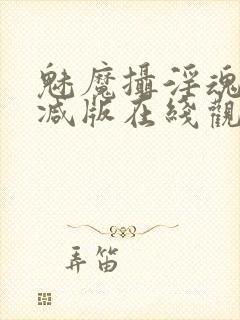 魅魔攝淫魂
减版在綫觀
弄笛